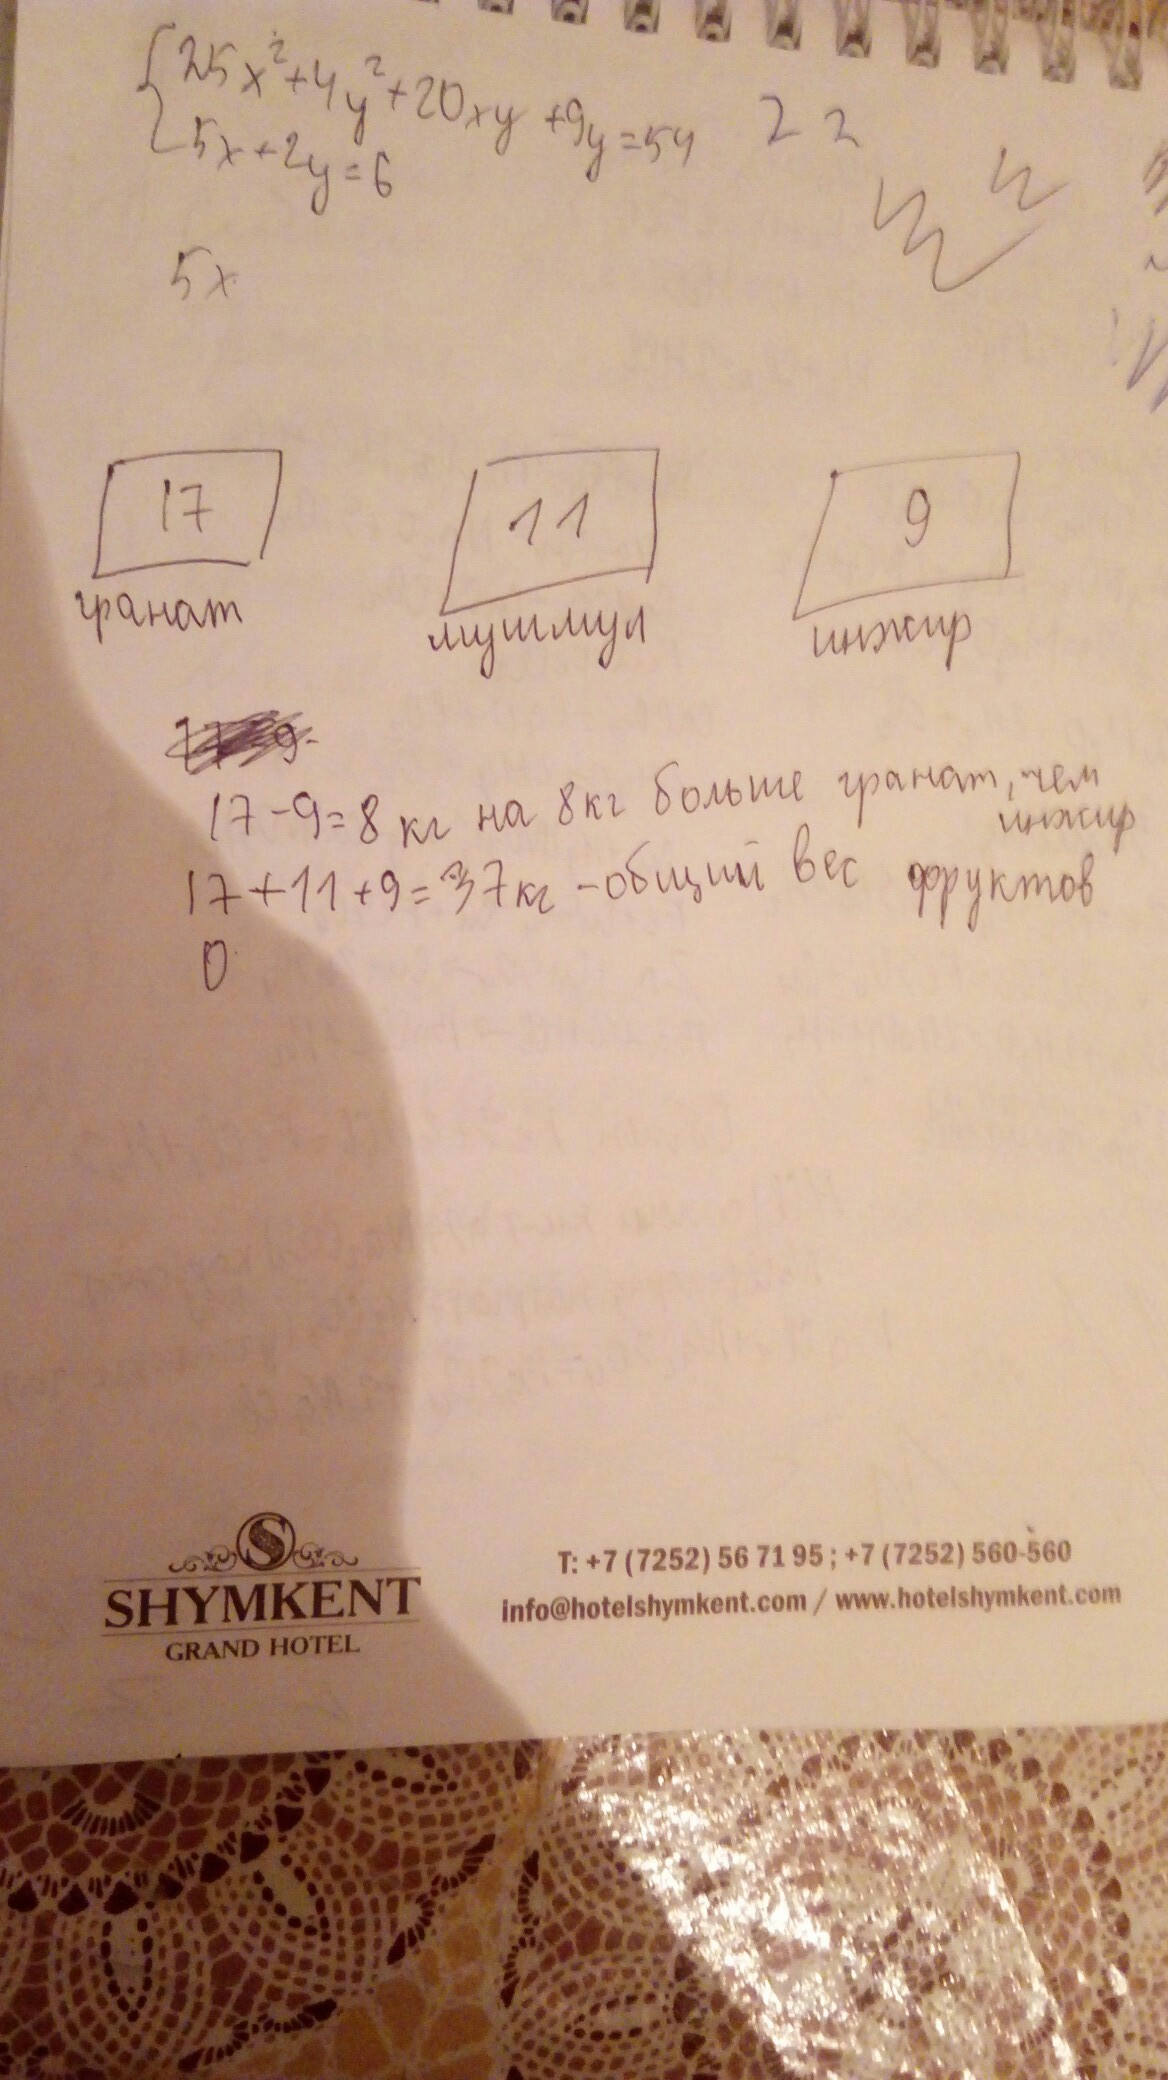 25x²+4y²+20xy+9y=54
5x+2y=6
2 2
5x
17
11
9
гранат
мушмул
инжир
17-9=8кг на 8кг больше гранат, чем
инжир
17+11+9=37кг -общий вес фруктов
0
S
SHYMKENT
GRAND HOTEL
T: +7 (7252) 56 71 95 ; +7 (7252) 560-560
info@hotelshymkent.com / www.hotelshymkent.com